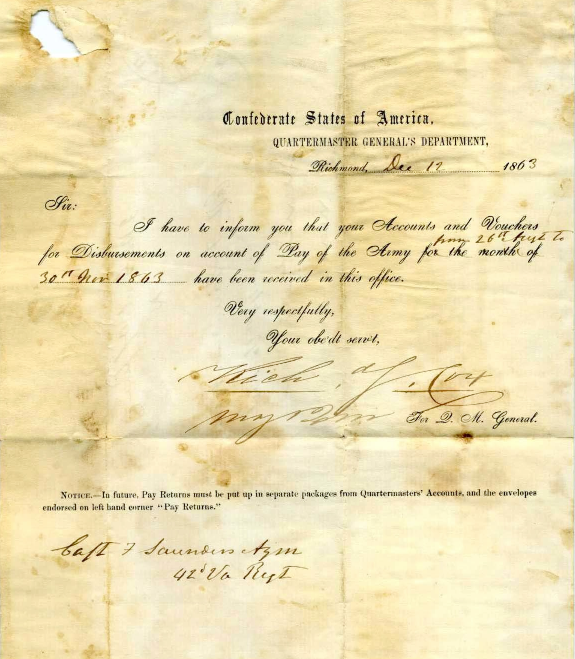 Confederate States of America,
QUARTERMASTER GENERAL'S DEPARTMENT,
Richmond, Dec 12 1863
Sir:
I have to inform you that your Accounts and Vouchers
from 26th Sept to
for Disbursements on account of Pay of the Army for the month of
30th Nov 1863 have been received in this office.
Very respectfully,
Your obedt servt,
Rich Cox
Maj For Q. M. General.
NOTICE.—In future, Pay Returns must be put up in separate packages from Quartermasters' Accounts, and the envelopes
endorsed on left hand corner "Pay Returns."
Capt F Saunders Aqm
42d Va Regt